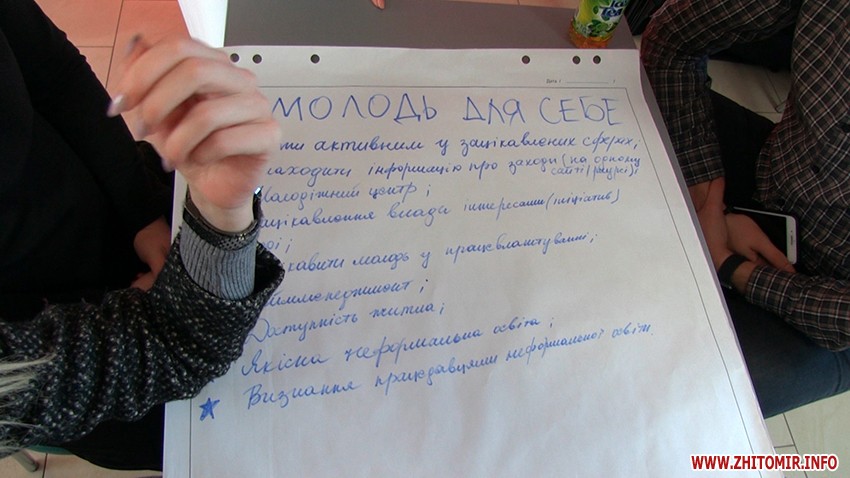 Дата
МОЛОДЬ ДЛЯ СЕБЕ
ти активним у зацікавлених сферах;
находити інформацію про заходи (на одному
сайті/ресурсі);
Молодіжний центр;
ацікавлення влади інтересами (ініціатив)
ді;
кавити молодь у працевлаштуванні;
йменеджмент;
Доступність житла;
Якісна неформальна освіта;
Визнання працедавцями неформальної освіт.
WWW.ZHITOMIR.INFO